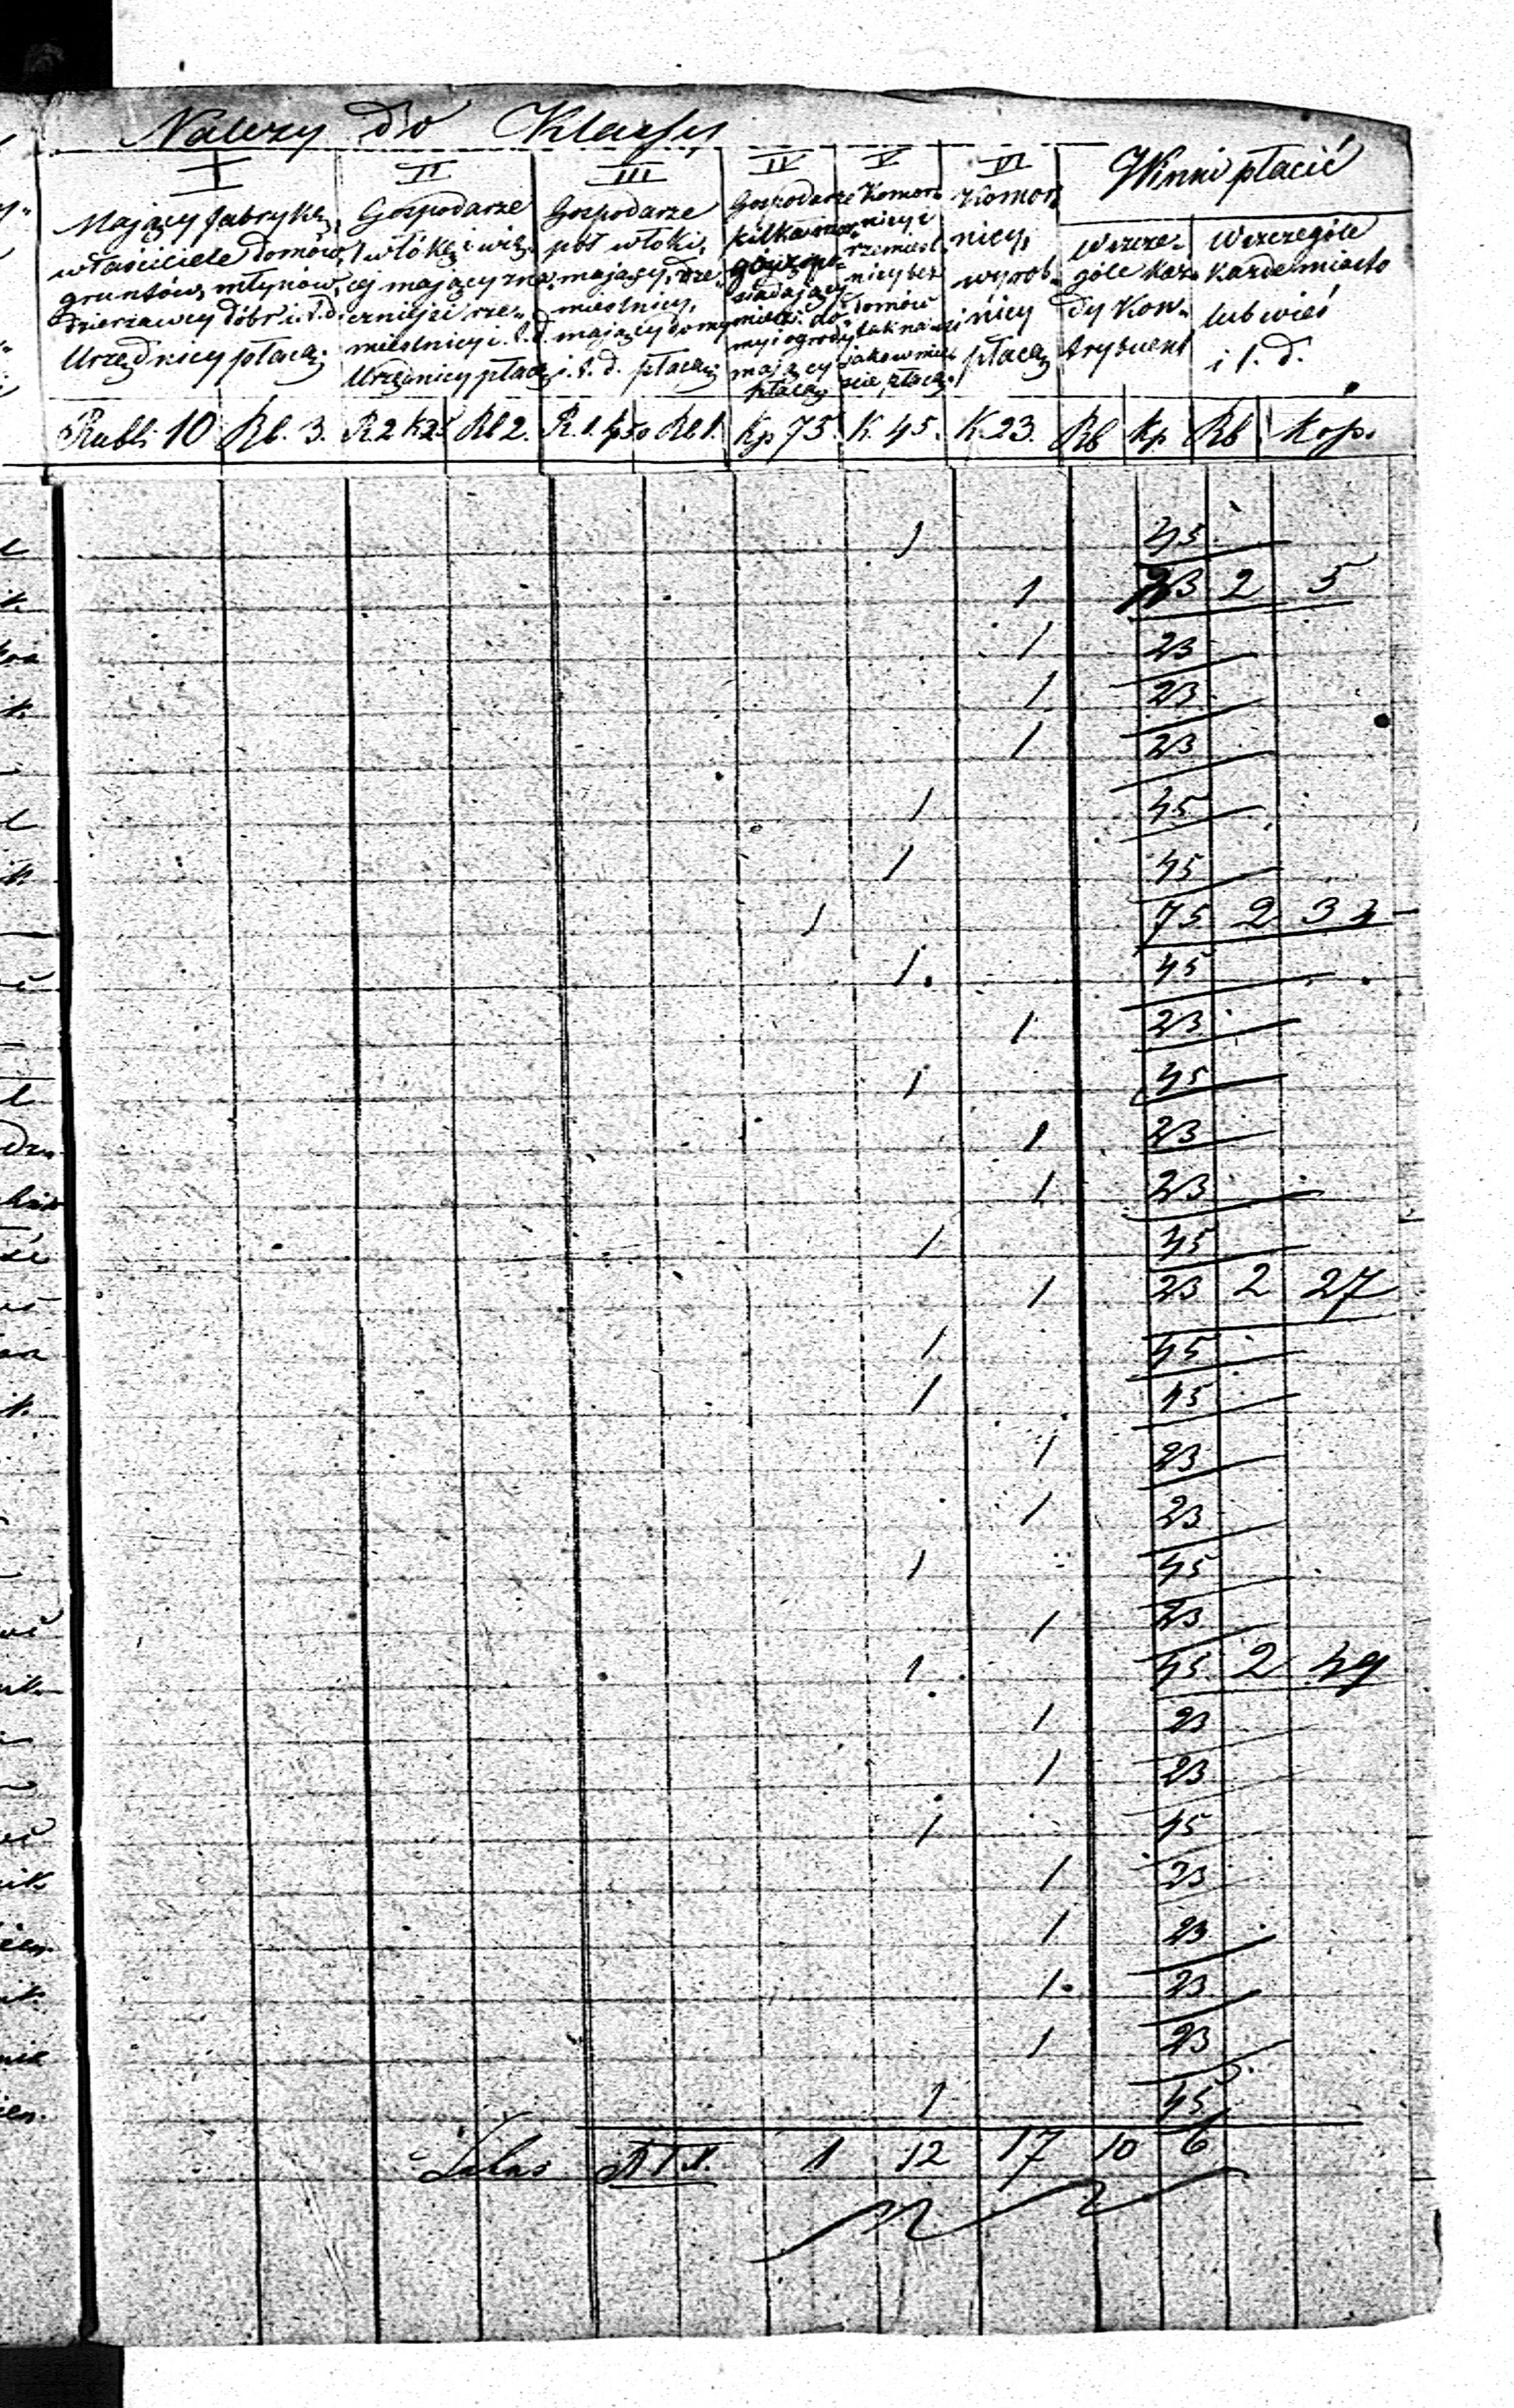 Należy do Klassy
I II III IV V VI Winni płacić
Mający fabrykę,
właściciele domów,
gruntów, młynów,
dzierżawcy dóbr i. t. d.
Urzędnicy płacą:
Gospodarze
1 włókę i wię-
cej mający zna-
czniejsi rze-
mieślnicy i. t. d.
Urzędnicy płacą
Gospodarze
pół włóki,
mający, Rze-
mieślnicy,
mający domy
i. t. d. płacą:
Gospodarze
siadający
my i ogrody
mający
płacą
Komor-
nicy i
rzemieśl-
nicy bez
domów
płacą
Komor-
nicy,
wyrob-
nicy
płacą
Wszcze-
góle każ-
dy Kon-
trybuent
Wszczególe
Każde miasto
lub wieś
i t. d.
Rubli 10 Rb. 3. R 2 k 25 Rb 2. R. 1. k 50 Rb 1. Kp 75. K. 45. K. 23. Rb Kp. Rb Kop.
1 45
1 23 2 5
1 23
1 23
1 23
1 45
1 45
1 75 2 34
1 45
1 23
1 45
1 23
1 23
1 45
1 23 2 27
1 45
1 45
1 23
1 23
1 45
1 23
1 45 2 49
1 23
1 23
1 45
1 23
1 23
1 23
1 23
1 45
1 12 17 10 6